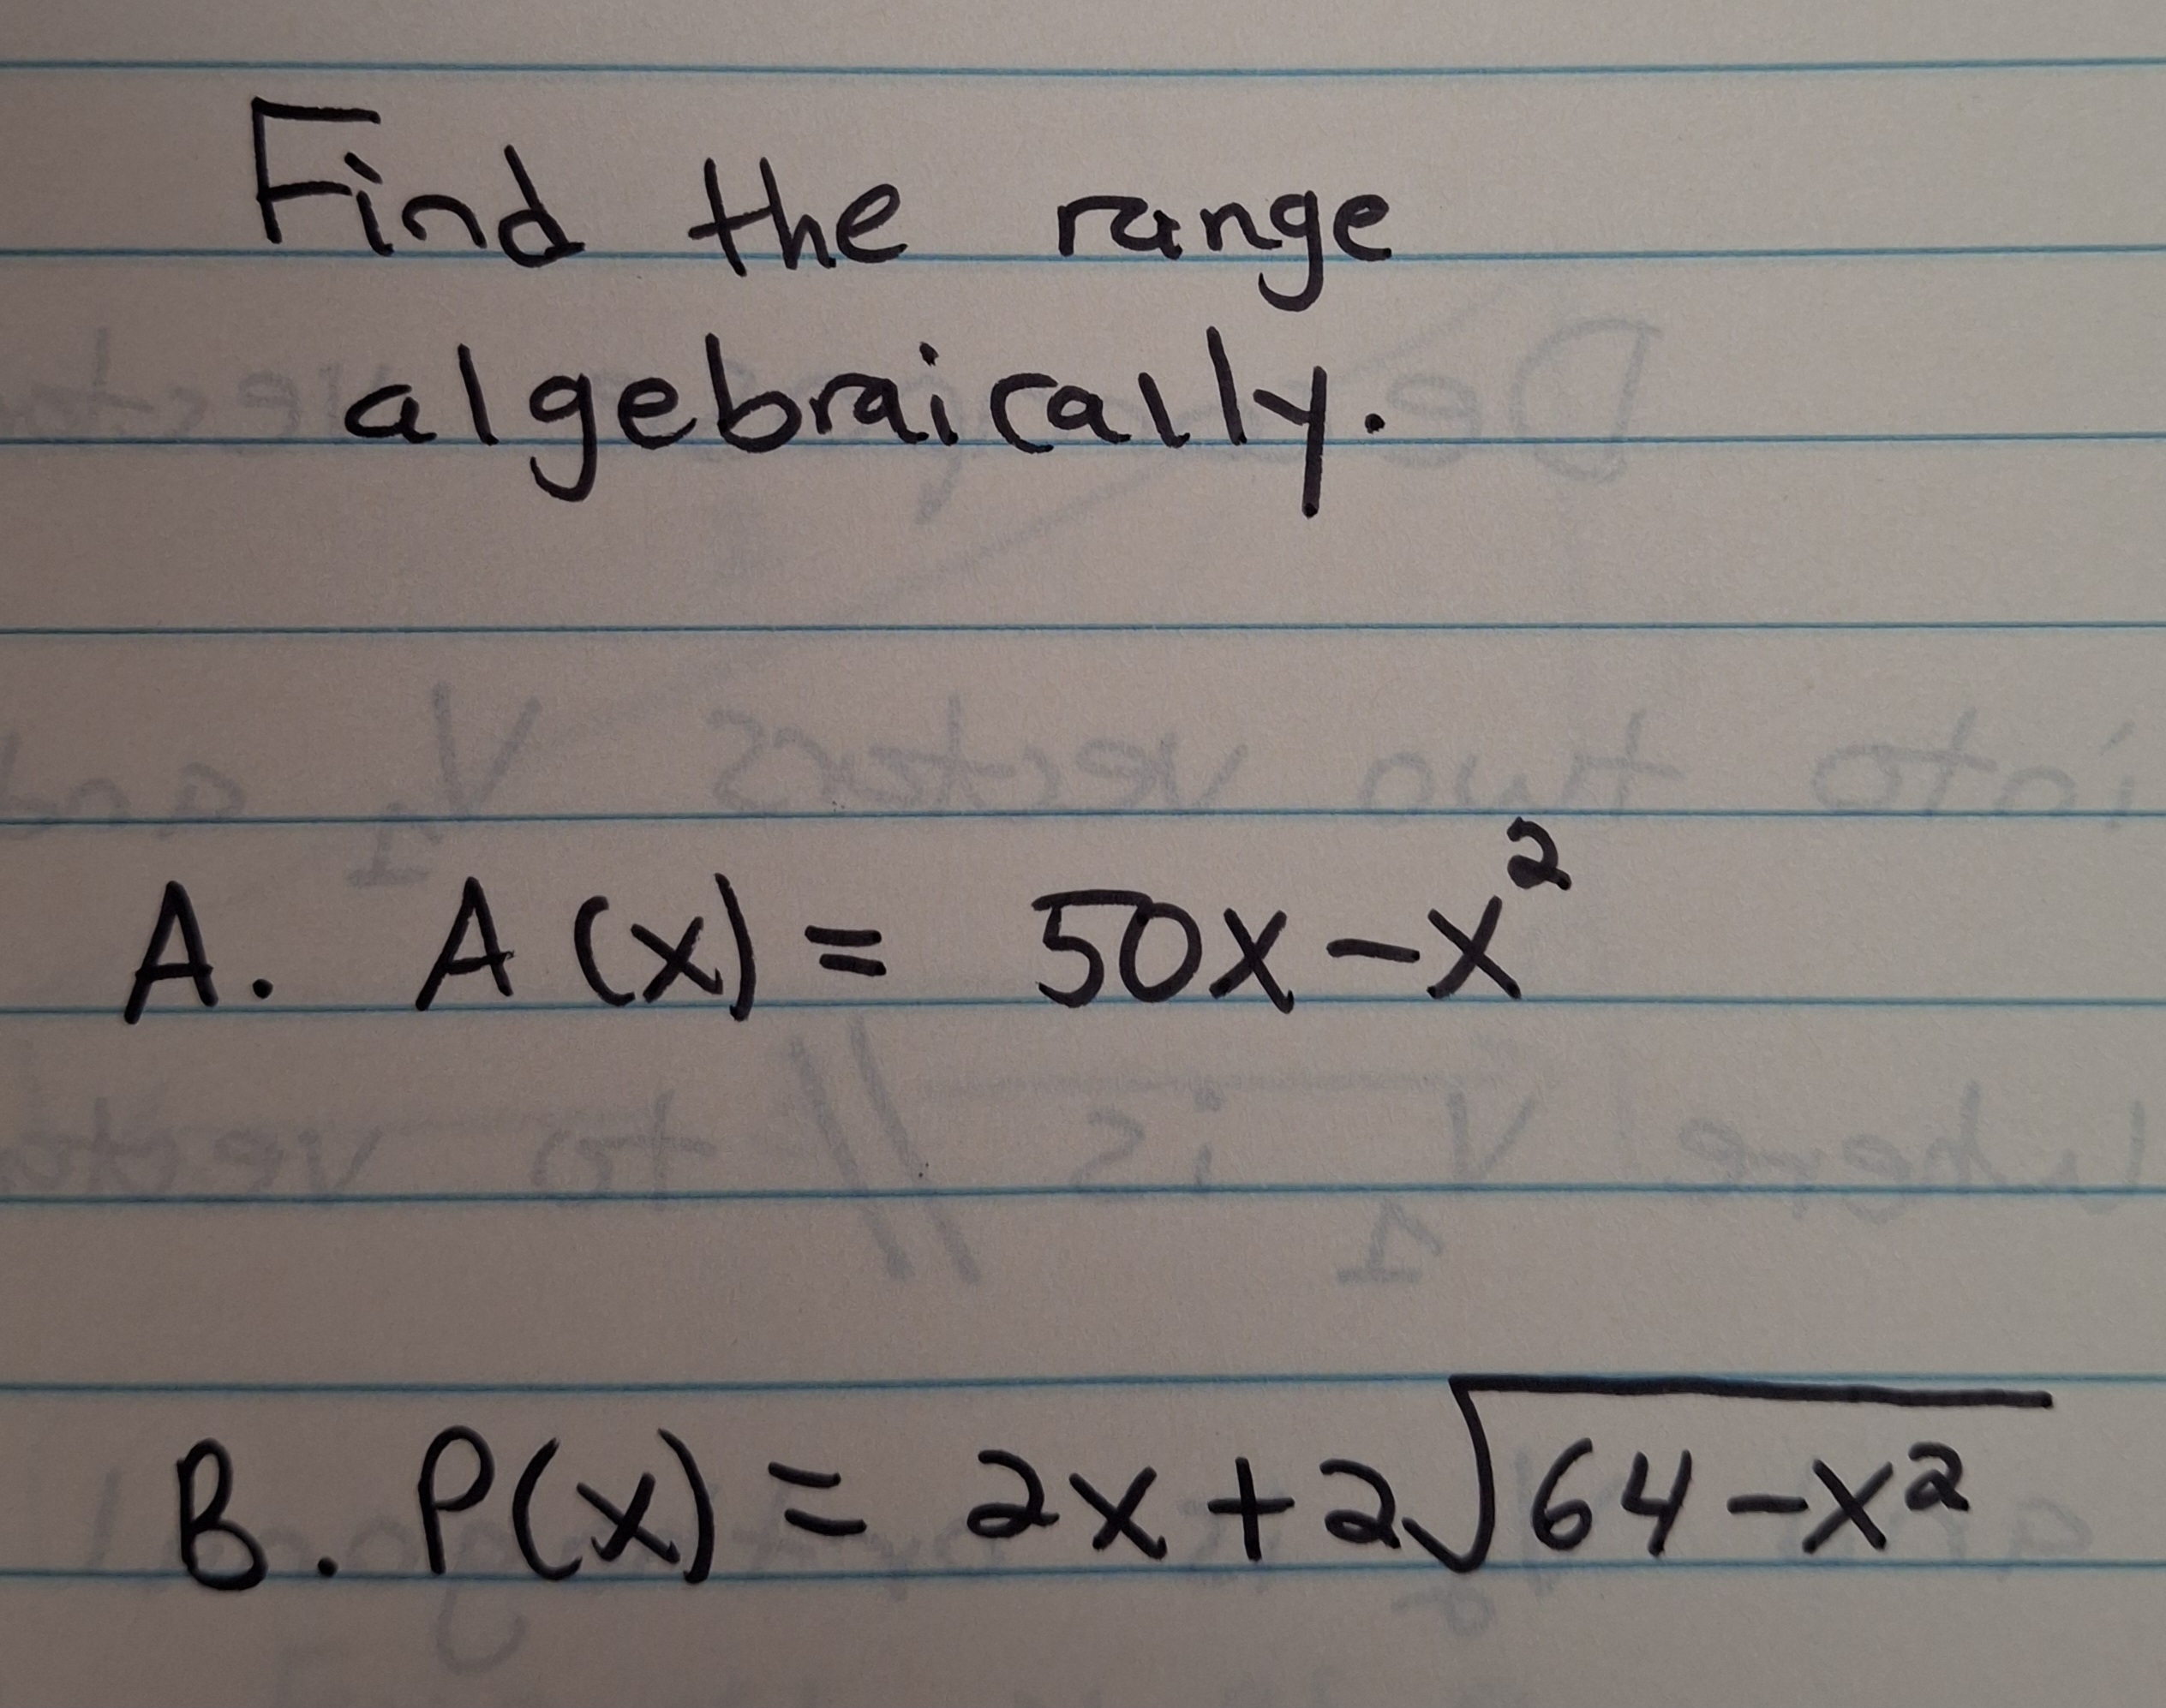 Find the range
algebraically.
A. A(x) = 50x-x²
B. P(x) = 2x+2√64-x²